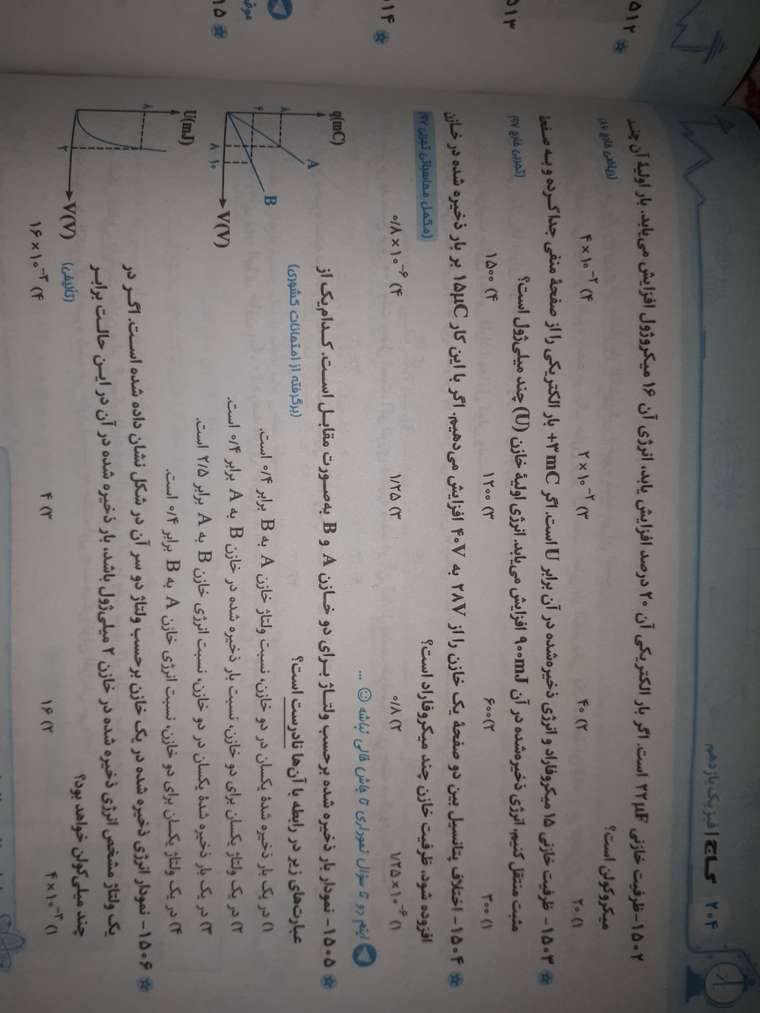 ۲۰۴ گاج | فیزیک یازدهم
۱۵۰۲- ظرفیت خازنی ۲۲μF است. اگر بار الکتریکی آن ۲۰ درصد افزایش یابد، انرژی آن ۱۶ میکروژول افزایش می‌یابد. بار اولیهٔ آن چند
میکروکولن است؟
(ریاضی خارج ۸۷)
۱) ۲۰ ۲) ۴۰ ۳) ۲×۱۰⁻² ۴) ۴×۱۰⁻²
۱۵۰۳- ظرفیت خازنی ۱۵ میکروفاراد و انرژی ذخیره‌شده در آن برابر U است. اگر +۳mC بار الکتریکی را از صفحهٔ منفی جدا کرده و به صفحهٔ
مثبت منتقل کنیم، انرژی ذخیره‌شده در آن ۹۰۰mJ افزایش می‌یابد. انرژی اولیهٔ خازن (U) چند میلی‌ژول است؟
(تجربی خارج ۹۷)
۱) ۳۰۰ ۲) ۶۰۰ ۳) ۱۲۰۰ ۴) ۱۵۰۰
۱۵۰۴- اختلاف پتانسیل بین دو صفحهٔ یک خازن را از ۲۸V به ۴۰V افزایش می‌دهیم. اگر با این کار ۱۵μC بر بار ذخیره شده در خازن
افزوده شود، ظرفیت خازن چند میکروفاراد است؟
(مکمل محاسباتی تجربی ۹۷)
۱) ۱/۲۵×۱۰⁻⁶ ۲) ۰/۸ ۳) ۱/۲۵ ۴) ۰/۸×۱۰⁻⁶
اینم دو تا سؤال نموداری تا جاش خالی نباشه ...
۱۵۰۵- نمودار بار ذخیره شده برحسب ولتاژ برای دو خازن A و B به‌صورت مقابل است. کدام‌یک از
عبارت‌های زیر در رابطه با آن‌ها نادرست است؟
(برگرفته از امتحانات کشوری)
۱) در یک بار ذخیره شدهٔ یکسان در دو خازن، نسبت ولتاژ خازن A به B برابر ۰/۴ است.
۲) در یک ولتاژ یکسان برای دو خازن، نسبت بار ذخیره شده در خازن B به A برابر ۰/۴ است.
۳) در یک بار ذخیره شدهٔ یکسان در دو خازن، نسبت انرژی خازن B به A برابر ۲/۵ است.
۴) در یک ولتاژ یکسان برای دو خازن، نسبت انرژی خازن A به B برابر ۰/۴ است.
q(mC)
۸
۴
A
B
۸ ۱۰
V(V)
۱۵۰۶- نمودار انرژی ذخیره شده در یک خازن برحسب ولتاژ دو سر آن در شکل نشان داده شده است. اگر در
یک ولتاژ مشخص انرژی ذخیره شده در خازن ۲ میلی‌ژول باشد، بار ذخیره شده در آن در این حالت برابر
چند میلی‌کولن خواهد بود؟
(تألیفی)
۱) ۴×۱۰⁻³ ۲) ۱۶ ۳) ۴ ۴) ۱۶×۱۰⁻³
U(mJ)
۸
۲
V(V)
۵۱۲
۵۱۳
۵۱۴
۱۵